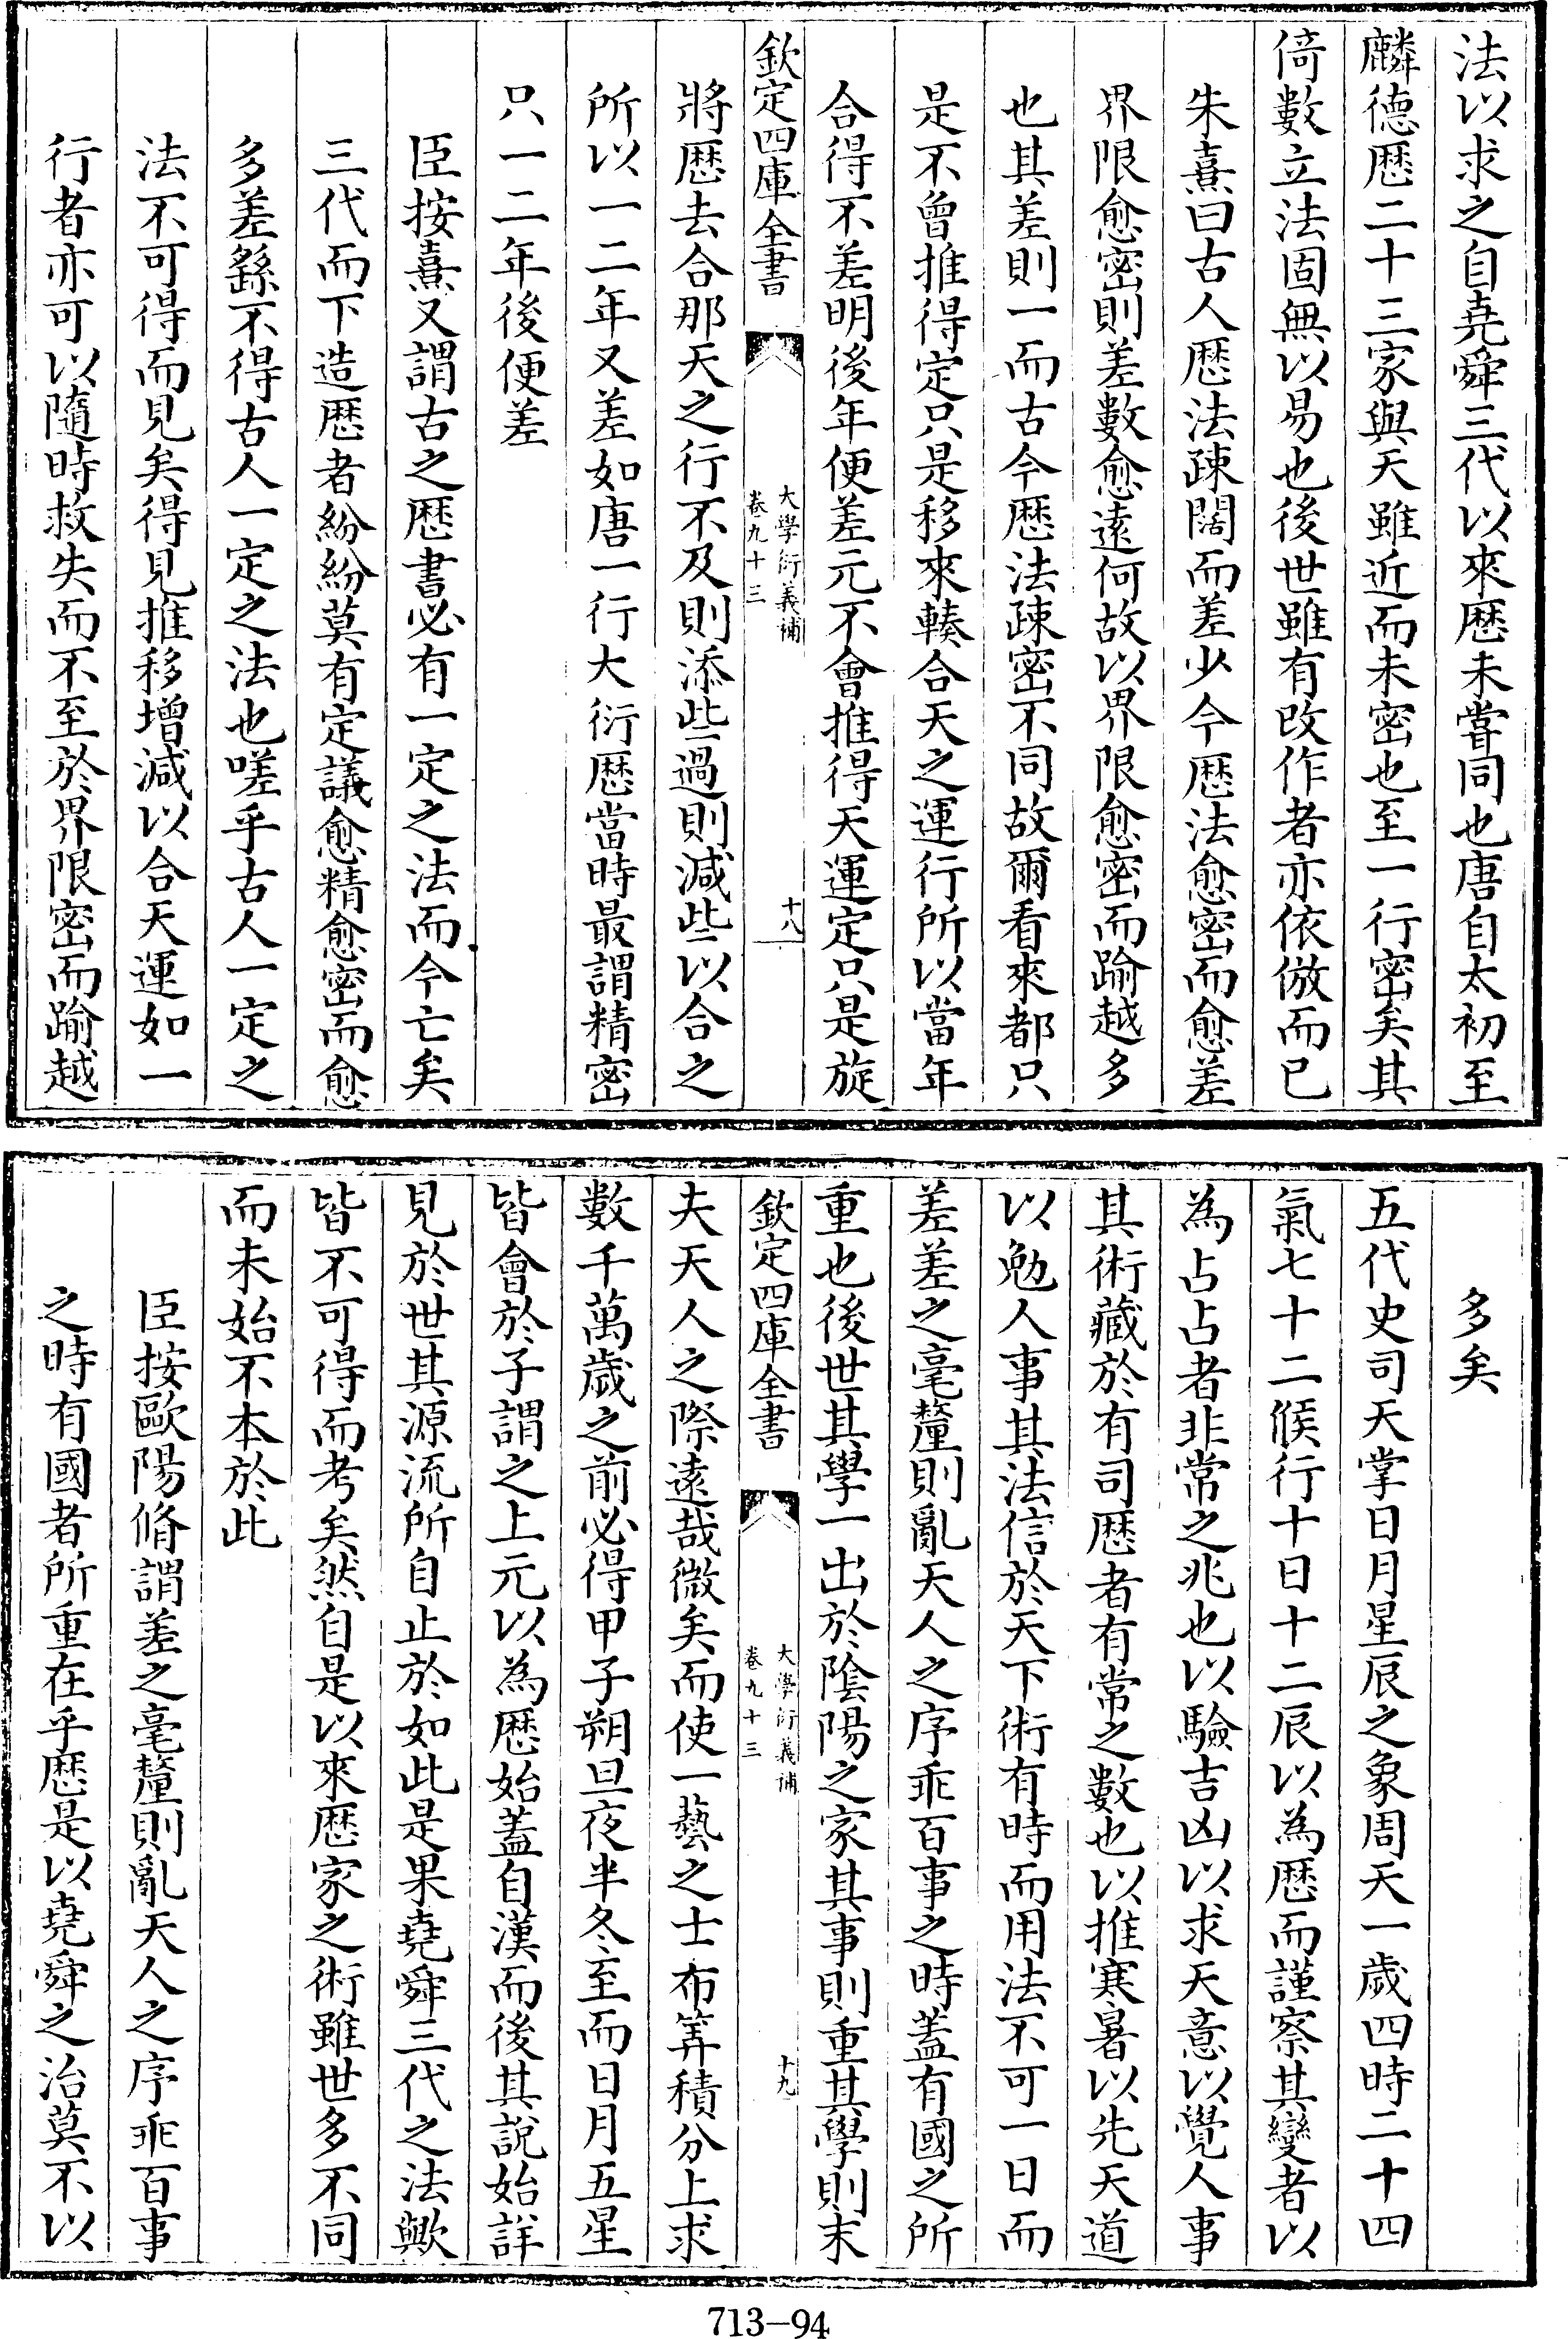 法以求之自堯舜三代以來歴未嘗同也唐自太初至
麟德歴二十三家與天雖近而未密也至一行密矣其
倚數立法固無以易也後世雖有改作者亦依倣而已
朱熹曰古人歴法疎闊而差少今歴法愈密而愈差
界限愈密則差數愈遠何故以界限愈密而踰越多
也其差則一而古今歴法疎密不同故爾看來都只
是不曾推得定只是移來輳合天之運行所以當年
合得不差明後年便差元不會推得天運定只是旋
欽定四庫全書
大學衍義補
卷九十三
十八
將歴去合那天之行不及則添些過則減些以合之
所以一二年又差如唐一行大衍歴當時最謂精密
只一二年後便差
臣按熹又謂古之歴書必有一定之法而今亡矣
三代而下造歴者紛紛莫有定議愈精愈密而愈
多差繇不得古人一定之法也嗟乎古人一定之
法不可得而見矣得見推移增減以合天運如一
行者亦可以隨時救失而不至於界限密而踰越
多矣
五代史司天掌日月星辰之象周天一歲四時二十四
氣七十二候行十日十二辰以為歴而謹察其變者以
為占占者非常之兆也以驗吉凶以求天意以覺人事
其術藏於有司歴者有常之數也以推寒暑以先天道
以勉人事其法信於天下術有時而用法不可一日而
差差之毫釐則亂天人之序乖百事之時蓋有國之所
重也後世其學一出於陰陽之家其事則重其學則末
欽定四庫全書
大學衍義補
卷九十三
十九
夫天人之際遠哉微矣而使一藝之士布筭積分上求
數千萬歲之前必得甲子朔旦夜半冬至而日月五星
皆會於子謂之上元以為歴始蓋自漢而後其說始詳
見於世其源流所自止於如此是果堯舜三代之法歟
皆不可得而考矣然自是以來歴家之術雖世多不同
而未始不本於此
臣按歐陽脩謂差之毫釐則亂天人之序乖百事
之時有國者所重在乎歴是以堯舜之治莫不以
713-94